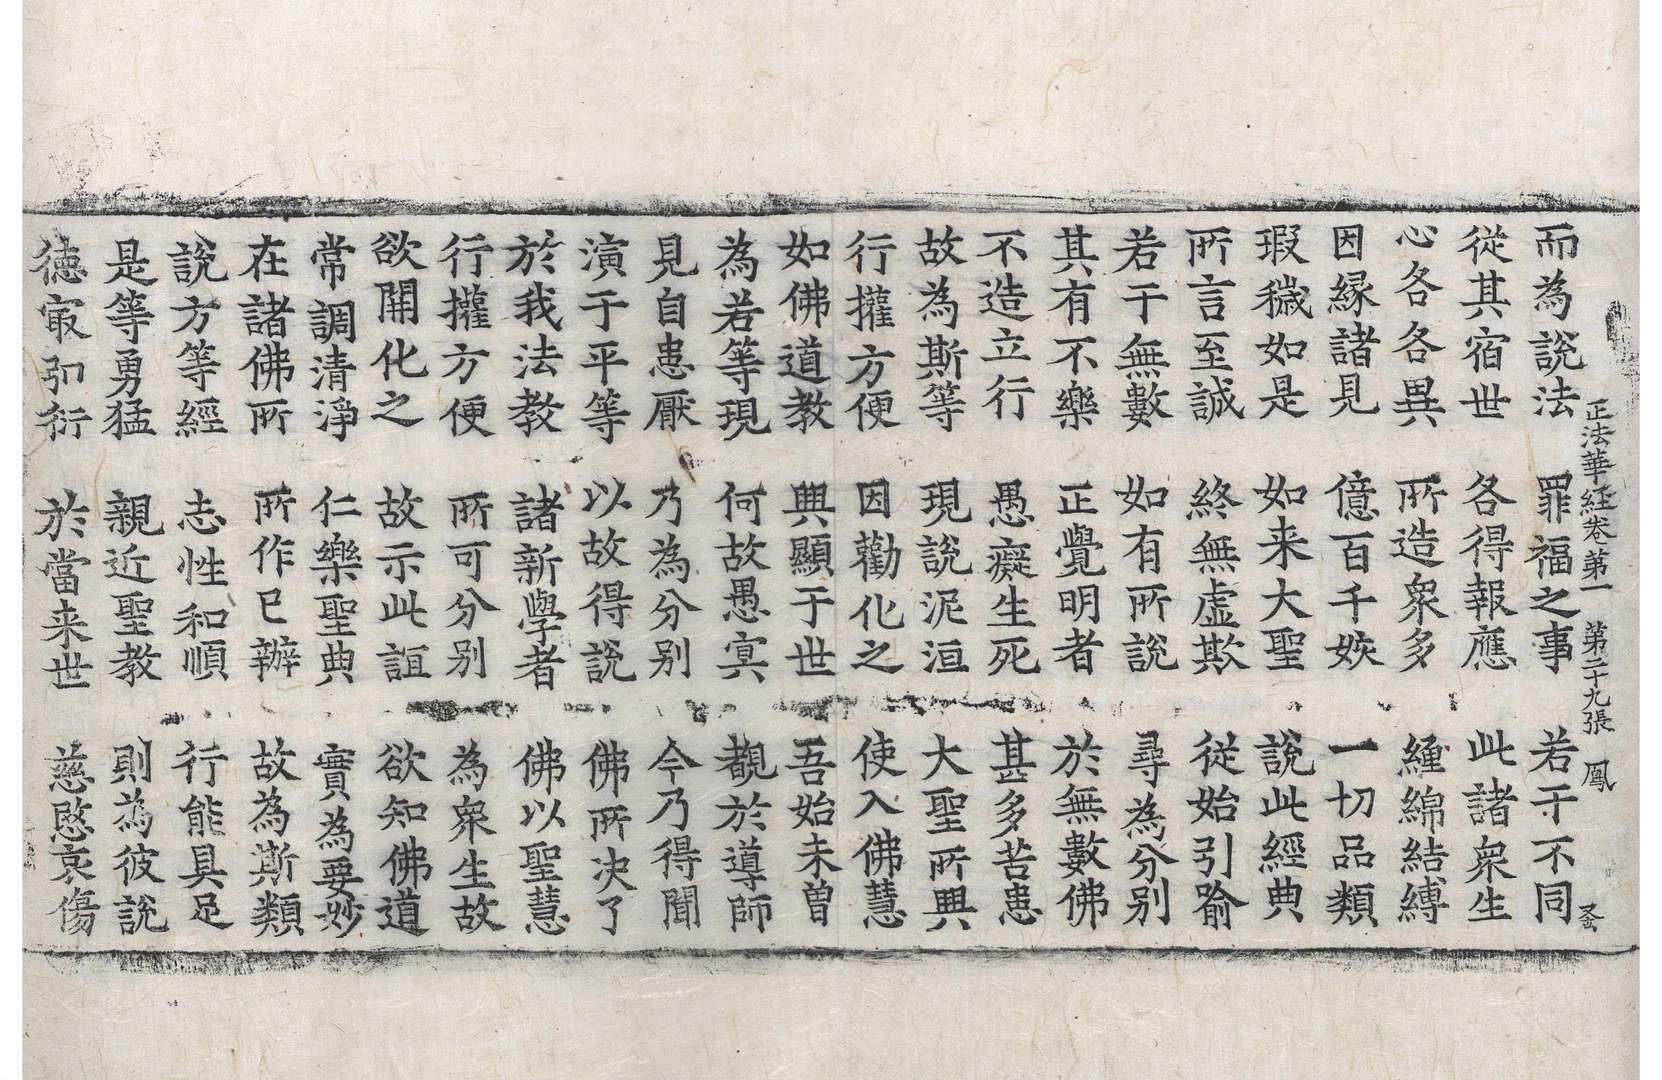 正法華經卷第一　第二十九張　鳳
而為說法　罪福之事　若干不同
從其宿世　各得報應　此諸衆生
心各各異　所造衆多　纏綿結縛
因縁諸見　億百千姟　一切品類
瑕穢如是　如来大聖　說此經典
所言至誠　終無虚欺　從始引喻
若干無數　如有所說　尋為分別
其有不樂　正覺明者　於無數佛
不造立行　愚癡生死　甚多苦患
故為斯等　現說泥洹　大聖所興
行攉方便　因勸化之　使入佛慧
如佛道教　興顯于世　吾始未曽
為若等現　何故愚冥　覩於導師
見自患厭　乃為分別　今乃得聞
演于平等　以故得說　佛所决了
於我法教　諸新學者　佛以聖慧
行攉方便　所可分別　為衆生故
欲開化之　故示此誼　欲知佛道
常調清淨　仁樂聖典　實為要妙
在諸佛所　所作已辦　故為斯類
說方等經　志性和順　行能具足
是等勇猛　親近聖教　則為彼說
徳㝡弘衍　於當来世　慈愍哀傷